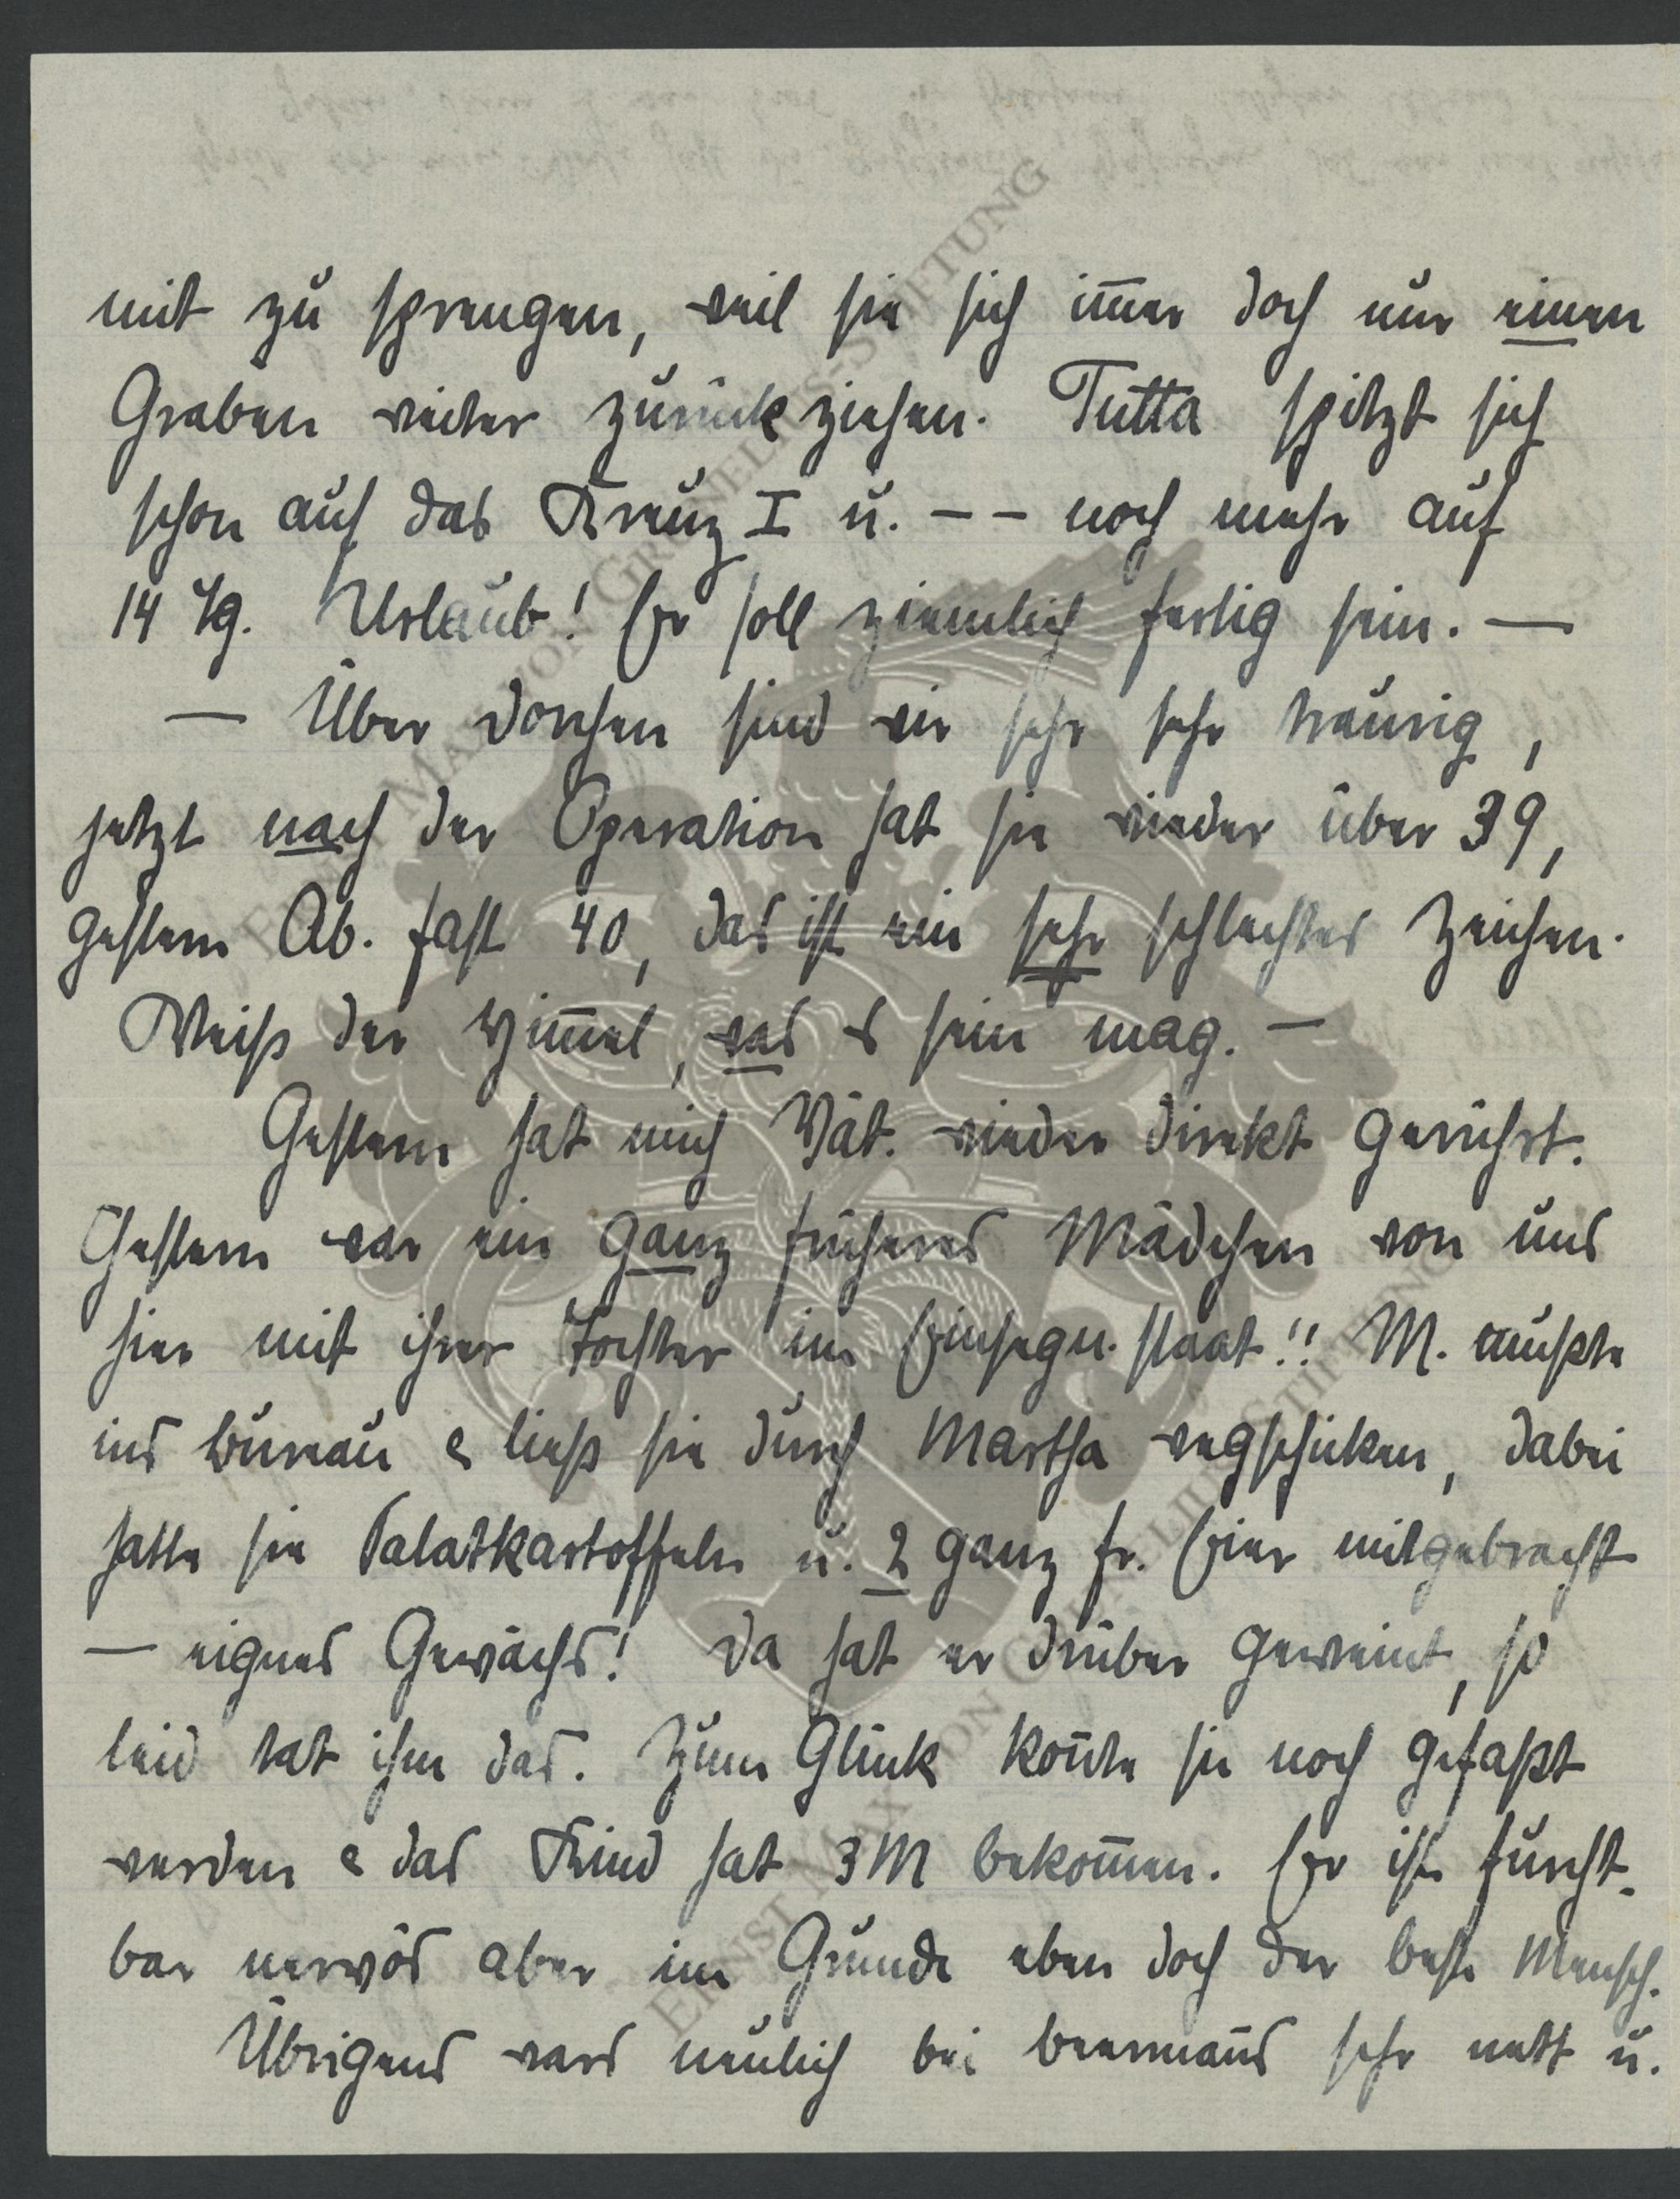 mit zu sprengen, weil sie sich im̅er doch nur einen
Graben weiter zurückziehen. Tutta spitzt sich
schon auf das Kreuz I u. -- noch mehr auf
14 Tg. Urlaub! Er soll ziemlich fertig sein. —
— Über Dorchen sind wir sehr sehr traurig,
jetzt nach der Operation hat sie wieder über 39,
gestern Ab. fast 40, das ist ein sehr schlechtes Zeichen.
Weiß der Him̅el, was es sein mag. —
Gestern hat mich Vät. wieder direkt gerührt.
Gestern war ein ganz früheres Mädchen von uns
hier mit ihrer Tochter im Einsegn. staat!! M. mußte
ins Bureau & ließ sie durch Martha wegschicken, dabei
hatte sie Salatkartoffeln u. 2 ganz fr. Eier mitgebracht
— eignes Gewächs! Da hat er drüber geweint, so
leid tat ihm das. Zum Glück kon̅te sie noch gefaßt
werden & das Kind hat 3 M bekom̅en. Er ist furcht-
bar nervös aber im Grunde eben doch der beste Mensch.
Übrigens wars neulich bei Beerman̅s sehr nett u.
ERNST MAX VON GRUNELIUS-STIFTUNG
ERNST MAX VON GRUNELIUS-STIFTUNG